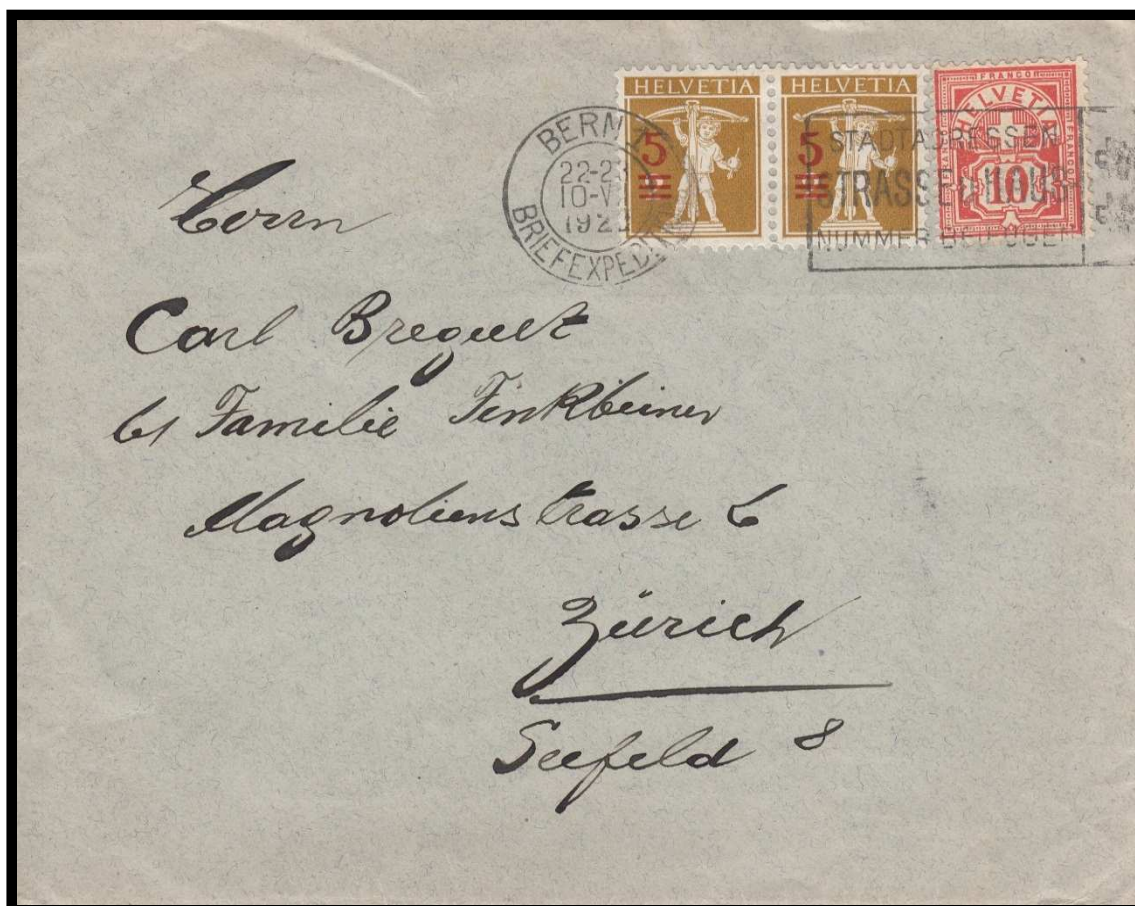 HELVETIA HELVETIA FRANCO HELVETIA FRANCO FRANCO
5 5 10
BERN
22-2
10-V
192
BRIEFEXPED
STADTADRESSEN
STRASSE HAUS
NUMMER
Herrn
Carl Breguet
bei Familie Finkbeiner
Magnolienstrasse 6
Zürich
Seefeld 8